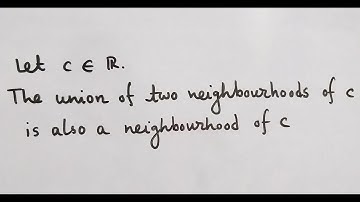 Let c ∈ ℝ.
The union of two neighbourhoods of c
is also a neighbourhood of c